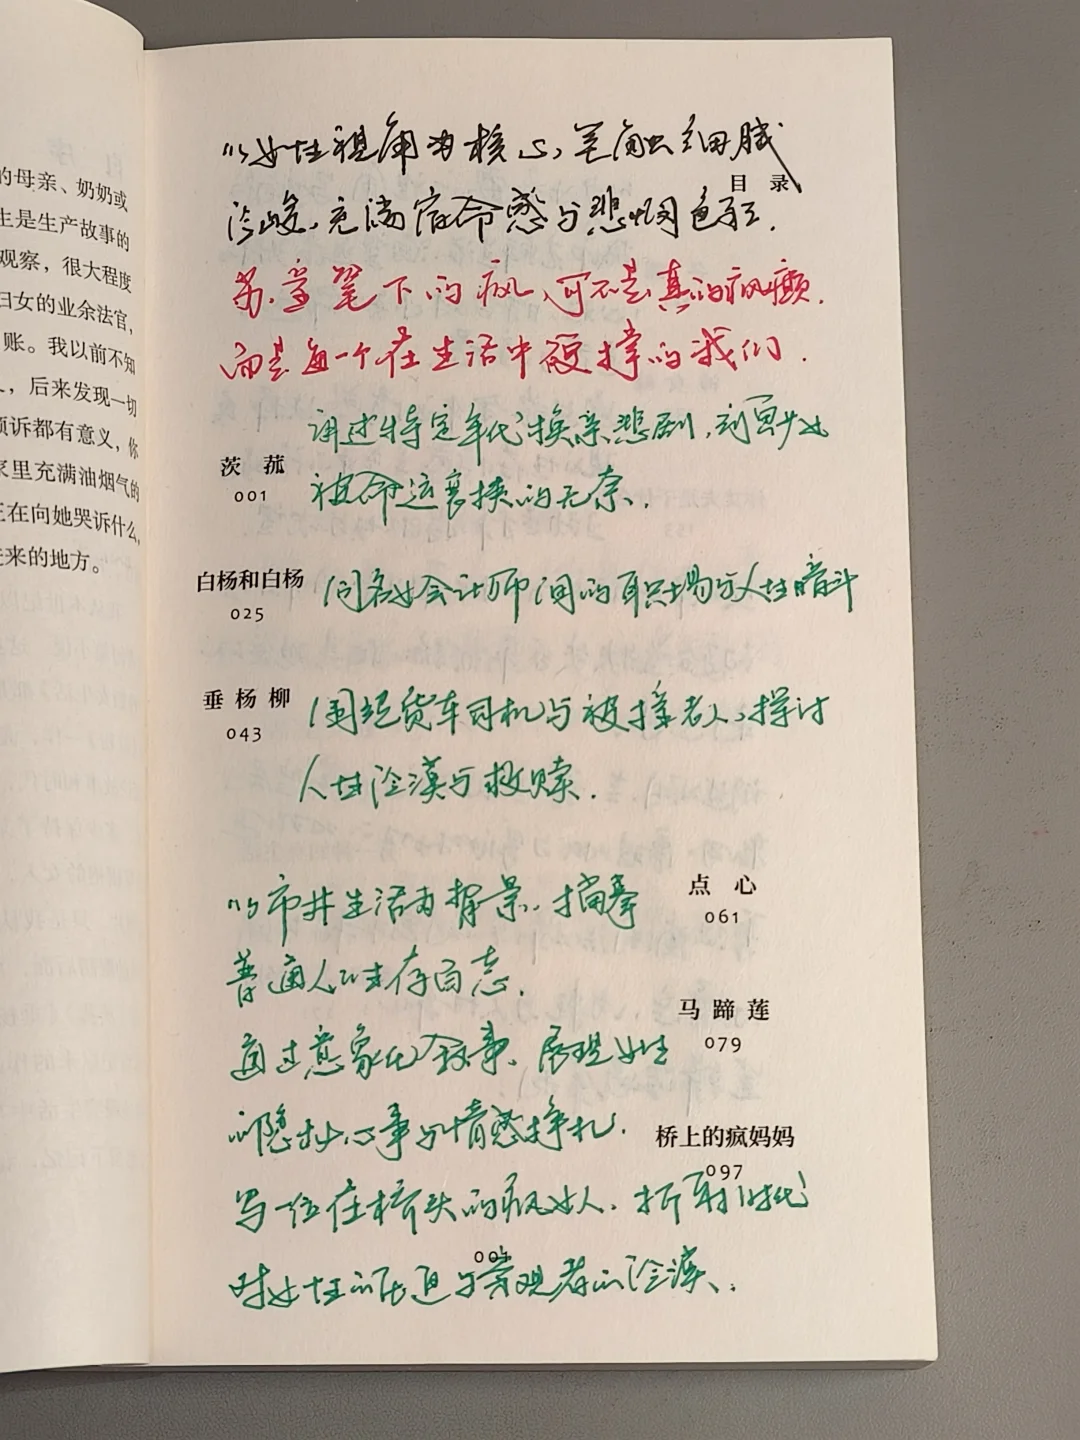 的母亲、奶奶或
生是生产故事的
观察，很大程度
妇女的业余法官，
账。我以前不知
，后来发现一切
倾诉都有意义，你
家里充满油烟气的
正在向她哭诉什么，
进来的地方。
以女性视角为核心，笔触细腻
目录
冷峻，充满宿命感与悲悯色彩．
苏童笔下的疯、可不是真的疯癫．
而是每一个在生活中硬撑的我们．
讲述特定年代换亲悲剧，刻画少女
茨菰
001
被命运裹挟的无奈．
白杨和白杨
025
同名女会计师间的职场与人性暗斗
垂杨柳
043
围绕货车司机与被撞老人，探讨
人性冷漠与救赎．
以市井生活为背景．描摹
点心
061
普通人的生存百态．
马蹄莲
079
通过意象化叙事、展现女性
的隐秘心事与情感挣扎．
桥上的疯妈妈
097
写一位在桥头的疯女人．折射时代
001
对女性的压迫与旁观者的冷漠、．